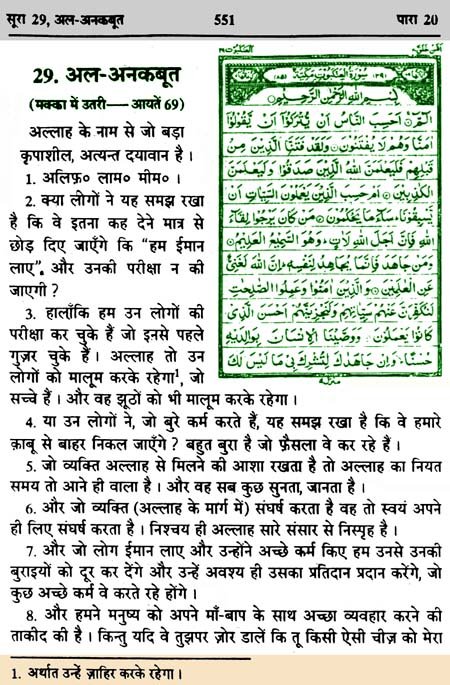 सूरा 29, अल-अनकबूत
551
पारा 20
29. अल-अनकबूत
(मक्का में उतरी— आयतें 69)
अल्लाह के नाम से जो बड़ा
कृपाशील, अत्यन्त दयावान है ।
1. अलिफ़० लाम० मीम० ।
2. क्या लोगों ने यह समझ रखा
है कि वे इतना कह देने मात्र से
छोड़ दिए जाएँगे कि “हम ईमान
लाए”, और उनकी परीक्षा न की
जाएगी ?
3. हालाँकि हम उन लोगों की
परीक्षा कर चुके हैं जो इनसे पहले
गुज़र चुके हैं । अल्लाह तो उन
लोगों को मालूम करके रहेगा¹, जो
सच्चे हैं । और वह झूठों को भी मालूम करके रहेगा ।
4. या उन लोगों ने, जो बुरे कर्म करते हैं, यह समझ रखा है कि वे हमारे
क़ाबू से बाहर निकल जाएँगे ? बहुत बुरा है जो फ़ैसला वे कर रहे हैं ।
5. जो व्यक्ति अल्लाह से मिलने की आशा रखता है तो अल्लाह का नियत
समय तो आने ही वाला है । और वह सब कुछ सुनता, जानता है ।
6. और जो व्यक्ति (अल्लाह के मार्ग में) संघर्ष करता है वह तो स्वयं अपने
ही लिए संघर्ष करता है । निश्चय ही अल्लाह सारे संसार से निस्पृह है ।
7. और जो लोग ईमान लाए और उन्होंने अच्छे कर्म किए हम उनसे उनकी
बुराइयों को दूर कर देंगे और उन्हें अवश्य ही उसका प्रतिदान प्रदान करेंगे, जो
कुछ अच्छे कर्म वे करते रहे होंगे ।
8. और हमने मनुष्य को अपने माँ-बाप के साथ अच्छा व्यवहार करने की
ताकीद की है । किन्तु यदि वे तुझपर ज़ोर डालें कि तू किसी ऐसी चीज़ को मेरा
1. अर्थात उन्हें ज़ाहिर करके रहेगा ।
بِسْمِ اللهِ الرَّحْمٰنِ الرَّحِيْمِ
الٓمّٓ اَحَسِبَ النَّاسُ اَنْ يُّتْرَكُوْٓا اَنْ يَّقُوْلُوْٓا
اٰمَنَّا وَهُمْ لَا يُفْتَنُوْنَ وَلَقَدْ فَتَنَّا الَّذِيْنَ مِنْ
قَبْلِهِمْ فَلَيَعْلَمَنَّ اللهُ الَّذِيْنَ صَدَقُوْا وَلَيَعْلَمَنَّ
الْكٰذِبِيْنَ اَمْ حَسِبَ الَّذِيْنَ يَعْمَلُوْنَ السَّيِّاٰتِ اَنْ
يَّسْبِقُوْنَا سَآءَ مَا يَحْكُمُوْنَ مَنْ كَانَ يَرْجُوْا لِقَآءَ
اللهِ فَاِنَّ اَجَلَ اللهِ لَاٰتٍ وَهُوَ السَّمِيْعُ الْعَلِيْمُ
وَمَنْ جَاهَدَ فَاِنَّمَا يُجَاهِدُ لِنَفْسِهٖ اِنَّ اللهَ لَغَنِيٌّ
عَنِ الْعٰلَمِيْنَ وَالَّذِيْنَ اٰمَنُوْا وَعَمِلُوا الصّٰلِحٰتِ
لَنُكَفِّرَنَّ عَنْهُمْ سَيِّاٰتِهِمْ وَلَنَجْزِيَنَّهُمْ اَحْسَنَ الَّذِيْ
كَانُوْا يَعْمَلُوْنَ وَوَصَّيْنَا الْاِنْسَانَ بِوَالِدَيْهِ
حُسْنًا وَاِنْ جَاهَدٰكَ لِتُشْرِكَ بِيْ مَا لَيْسَ لَكَ